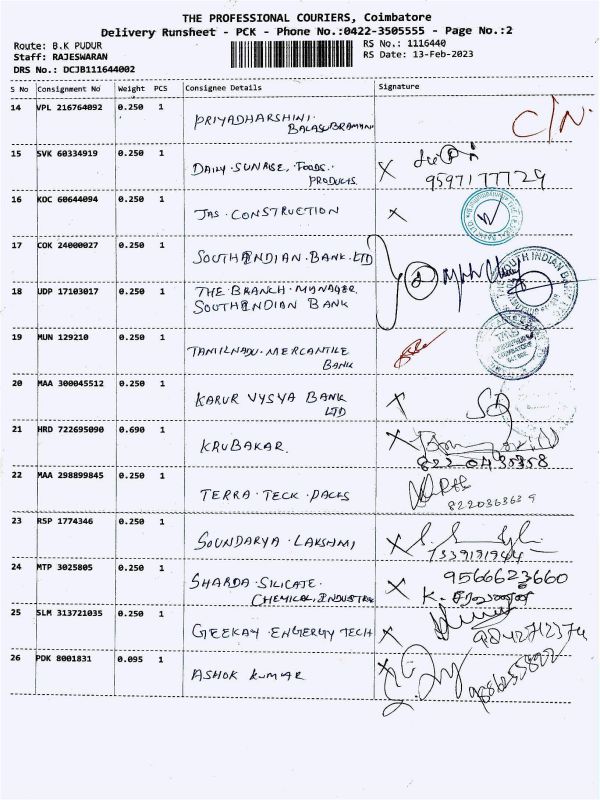 THE PROFESSIONAL COURIERS, Coimbatore
Delivery Runsheet - PCK - Phone No.:0422-3505555 - Page No.:2
Route: B.K PUDUR
RS No.: 1116440
Staff: RAJESWARAN
RS Date: 13-Feb-2023
DRS No.: DCJB111644002
S No Consignment No Weight PCS Consignee Details Signature
14 VPL 216764092 0.250 1 PRIYADHARSHINI. C/N.
BALASUBRAMANI
15 SVK 60334919 0.250 1 DAILY.SUNRISE.FOODS.
PRODUCTS. X 9597177729
16 KDC 60644094 0.250 1 JAS.CONSTRUCTION X
17 COK 24000027 0.250 1 SOUTHINDIAN.BANK.LTD
18 UDP 17103017 0.250 1 THE.BRANCH.MANAGER.
SOUTHINDIAN BANK
19 MUN 129210 0.250 1 TAMILNADU.MERCANTILE
BANK
20 MAA 300045512 0.250 1 KARUR VYSYA BANK X
LTD
21 HRD 722695090 0.690 1 KRUBAKAR. X
22 MAA 298899845 0.250 1 TERRA.TECK.PACKS
23 RSP 1774346 0.250 1 SOUNDARYA.LAKSHMI X
24 MTP 3025805 0.250 1 SHARDA.SILICATE. X 9566623660
CHEMICAL.INDUSTRIES
25 SLM 313721035 0.250 1 GEEKAY.ENGERGY TECH X 9842712374
26 PDK 8001831 0.095 1 ASHOK KUMAR X